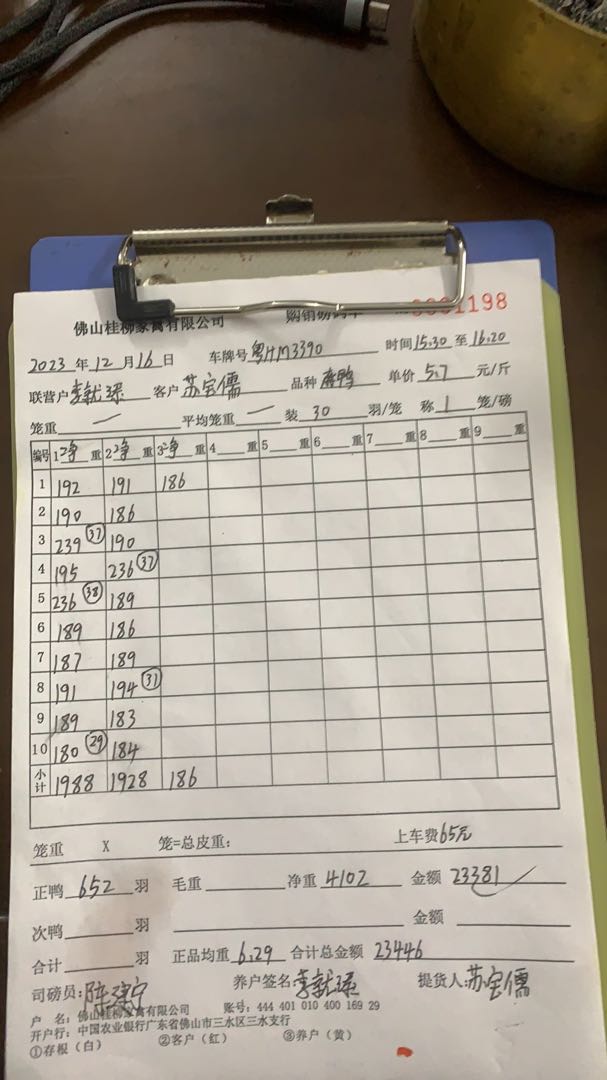 佛山桂柳家禽有限公司 购销磅码单 0001198
2023年12月16日 车牌号粤HM3390 时间15:30至16:20
联营户李就深 客户苏宝儒 品种麻鸭 单价5.7元/斤
笼重— 平均笼重— 装30羽/笼 称1笼/磅
编号 1净重 2净重 3净重 4重 5重 6重 7重 8重 9重
1 192 191 186
2 190 186
3 239 ㊲ 190
4 195 236 ㊲
5 236 ㊳ 189
6 189 186
7 187 189
8 191 194 ㉛
9 189 183
10 180 ㉙ 184
小计 1988 1928 186
笼重 X 笼=总皮重: 上车费65元
正鸭652羽 毛重 净重4102 金额23381
次鸭 羽 金额
合计 羽 正品均重6.29 合计总金额23446
司磅员: 养户签名李就深 提货人:苏宝儒
户 名: 佛山桂柳家禽有限公司 账号: 444 401 010 400 169 29
开户行: 中国农业银行广东省佛山市三水区三水支行
①存根(白) ②客户(红) ③养户(黄)